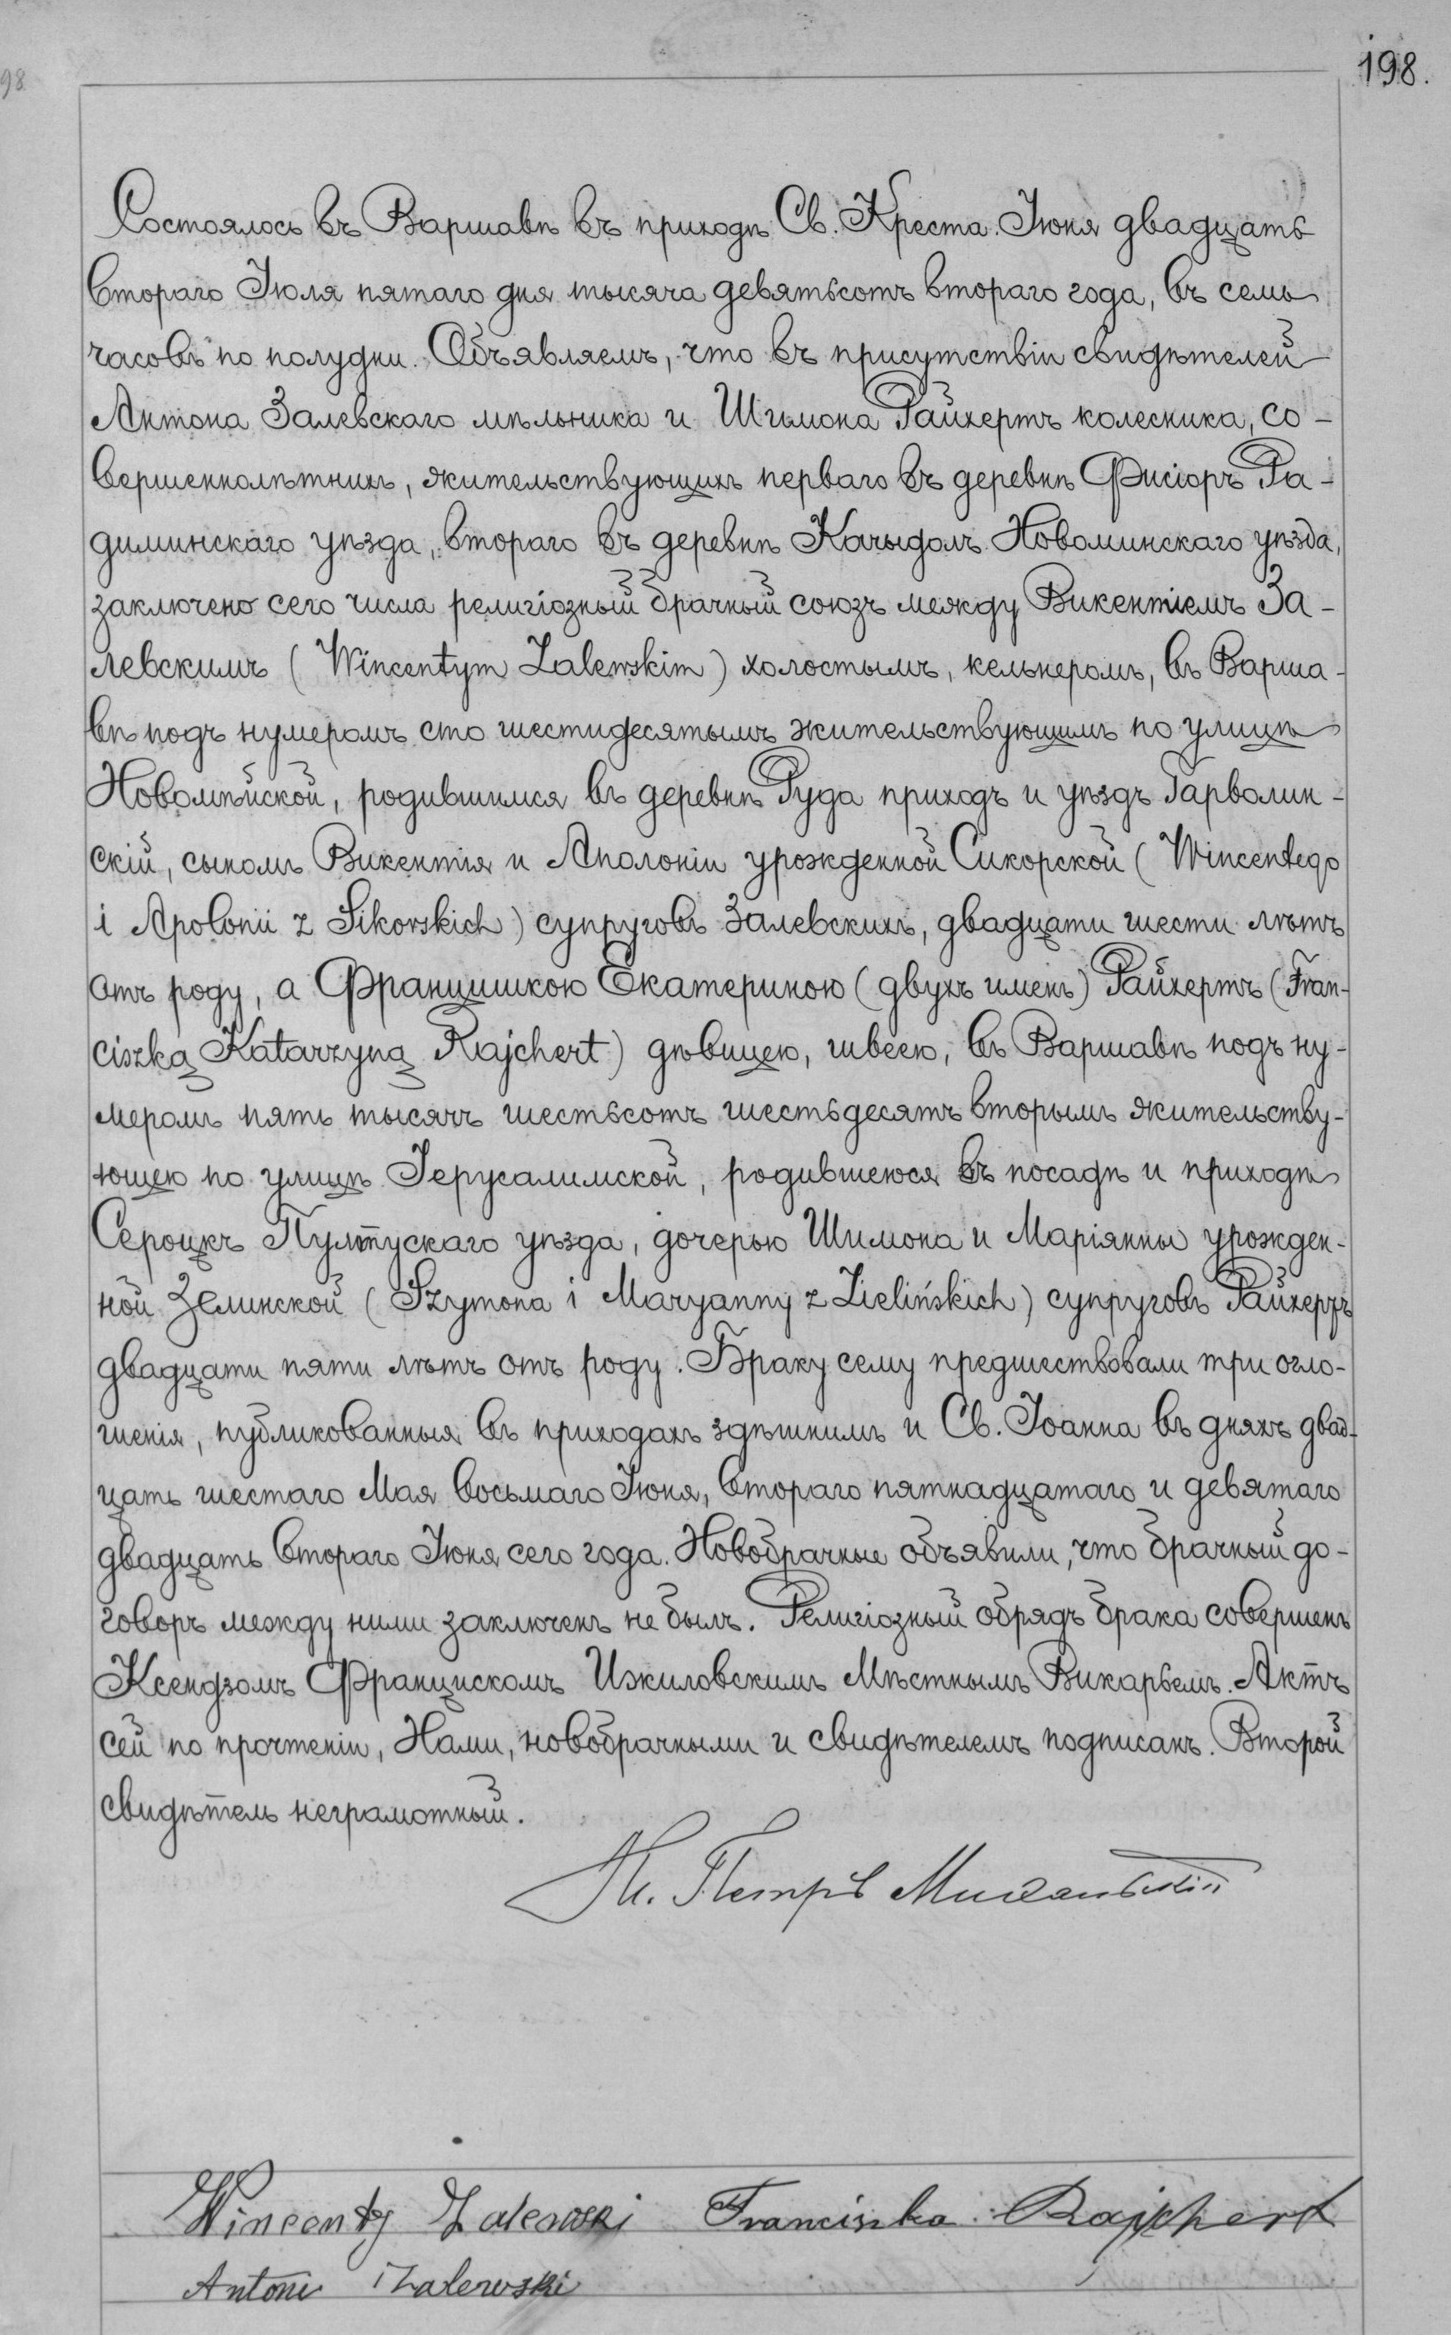 198.
98
Состоялось въ Варшавѣ въ приходѣ Св. Креста. Іюня двадцать
втораго Іюля пятаго дня тысяча девятьсотъ втораго года, въ семь
часовъ по полудни. Объявляемъ, что въ присутствіи свидѣтелей
Антона Залевскаго мѣльника и Шимона Райхертъ колесника, со-
вершеннолѣтнихъ, жительствующихъ перваго въ деревнѣ Фисіоръ Ра-
диминскаго уѣзда, втораго въ деревнѣ Качыдолъ Новоминскаго уѣзда,
заключено сего числа религіозный брачный союзъ между Викентіемъ За-
левскимъ (Wincentym Zalewskim) холостымъ, кельнеромъ, въ Варша-
вѣ подъ нумеромъ сто шестидесятымъ жительствующимъ по улицѣ
Новомѣйской, родившимся въ деревнѣ Руда приходъ и уѣздъ Гарволин-
скій, сыномъ Викентія и Аполоніи урожденной Сикорской (Wincentego
i Apolonii z Sikorskich) супруговъ Залевскихъ, двадцати шести лѣтъ
отъ роду, а Францишкою Екатериною (двухъ именъ) Райхертъ (Fran-
ciszką Katarzyną Rajchert) дѣвицею, швеею, въ Варшавѣ подъ ну-
меромъ пять тысячъ шестьсотъ шестьдесятъ вторымъ жительству-
ющею по улицѣ Іерусалимской, родившеюся въ посадѣ и приходѣ
Сероцкъ Пултускаго уѣзда, дочерью Шимона и Маріянны урожден-
ной Зелинской (Szymona i Maryanny z Zielińskich) супруговъ Райхертъ
двадцати пяти лѣтъ отъ роду. Браку сему предшествовали три огло-
шенія, публикованныя въ приходахъ здѣшнимъ и Св. Іоанна въ дняхъ двад-
цать шестаго Мая восьмаго Іюня, втораго пятнадцатаго и девятаго
двадцать втораго Іюня сего года. Новобрачные объявили, что брачный до-
говоръ между ними заключенъ не былъ. Религіозный обрядъ брака совершенъ
Ксендзомъ Францискомъ Ижиловскимъ Мѣстнымъ Викарьемъ. Актъ
сей по прочтеніи, Нами, новобрачными и свидѣтелемъ подписанъ. Второй
свидѣтель неграмотный.
Петръ
Wincenty Zalewski Franciszka Rajchert
Antoni Zalewski